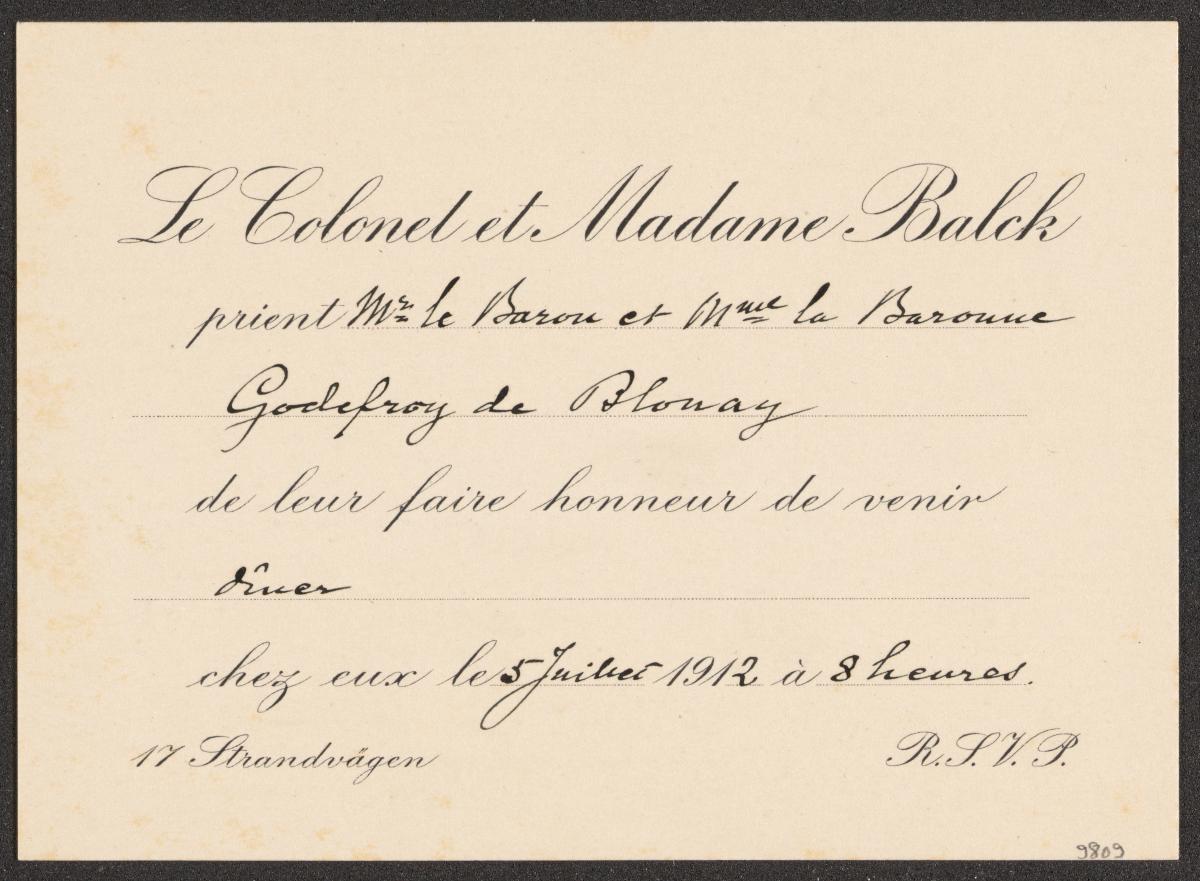 Le Colonel et Madame Balck
prient Mr le Baron et Mme la Baronne
Godefroy de Blonay
de leur faire honneur de venir
dîner
chez eux le 5 Juillet 1912 à 8 heures.
17 Strandvägen R.S.V.P.
9809